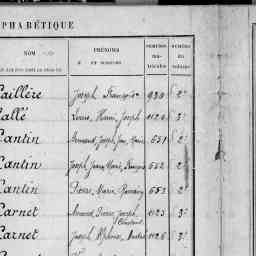 PHABÉTIQUE
NOM
PRÉNOMS
ET SURNOMS
NUMÉRO
ma-
tricule
NUMÉRO
du
volume
Caillère Joseph François 930 2e
Callé Louis, Henri, Joseph 1124 3e
Cantin Armand, Joseph, Jean, Marie 551 2e
Cantin Joseph, Jeany, Marie, François 552 2e
Cantin Pierre, Marie, 553 2e
Carnet Armand, Pierre, Joseph, 1125 3e
Carnet Joseph, Alphonse, 1126 3e